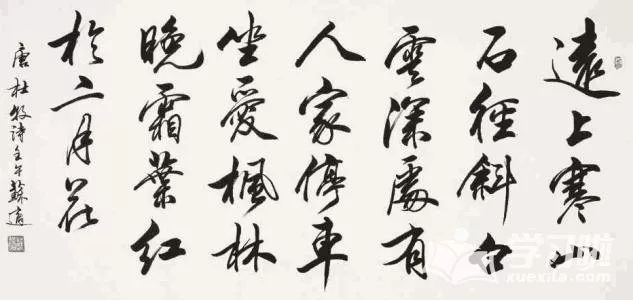 遠上寒山
石徑斜白
雲深處有
人家停車
坐愛楓林
晚霜葉紅
於二月花
唐杜牧詩壬午蘇
学习啦
www.xuexila.com